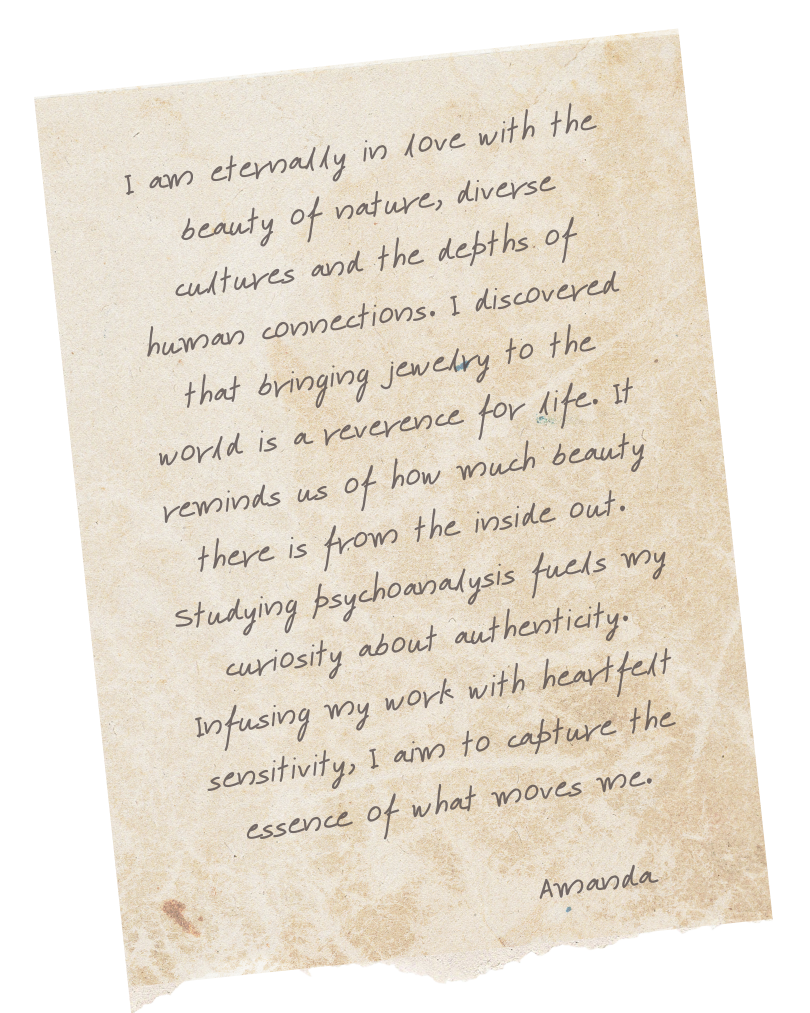 I am eternally in love with the
beauty of nature, diverse
cultures and the depths of
human connections. I discovered
that bringing jewelry to the
world is a reverence for life. It
reminds us of how much beauty
there is from the inside out.
Studying psychoanalysis fuels my
curiosity about authenticity.
Infusing my work with heartfelt
sensitivity, I aim to capture the
essence of what moves me.
Amanda